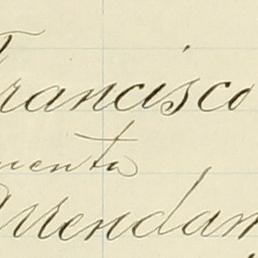 Francisco
uenta
Arrendam